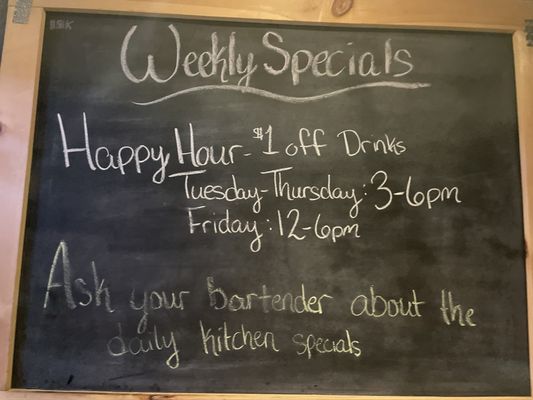 Weekly Specials
Happy Hour - $1 off Drinks
Tuesday-Thursday: 3-6pm
Friday: 12-6pm
Ask your bartender about the
daily kitchen specials